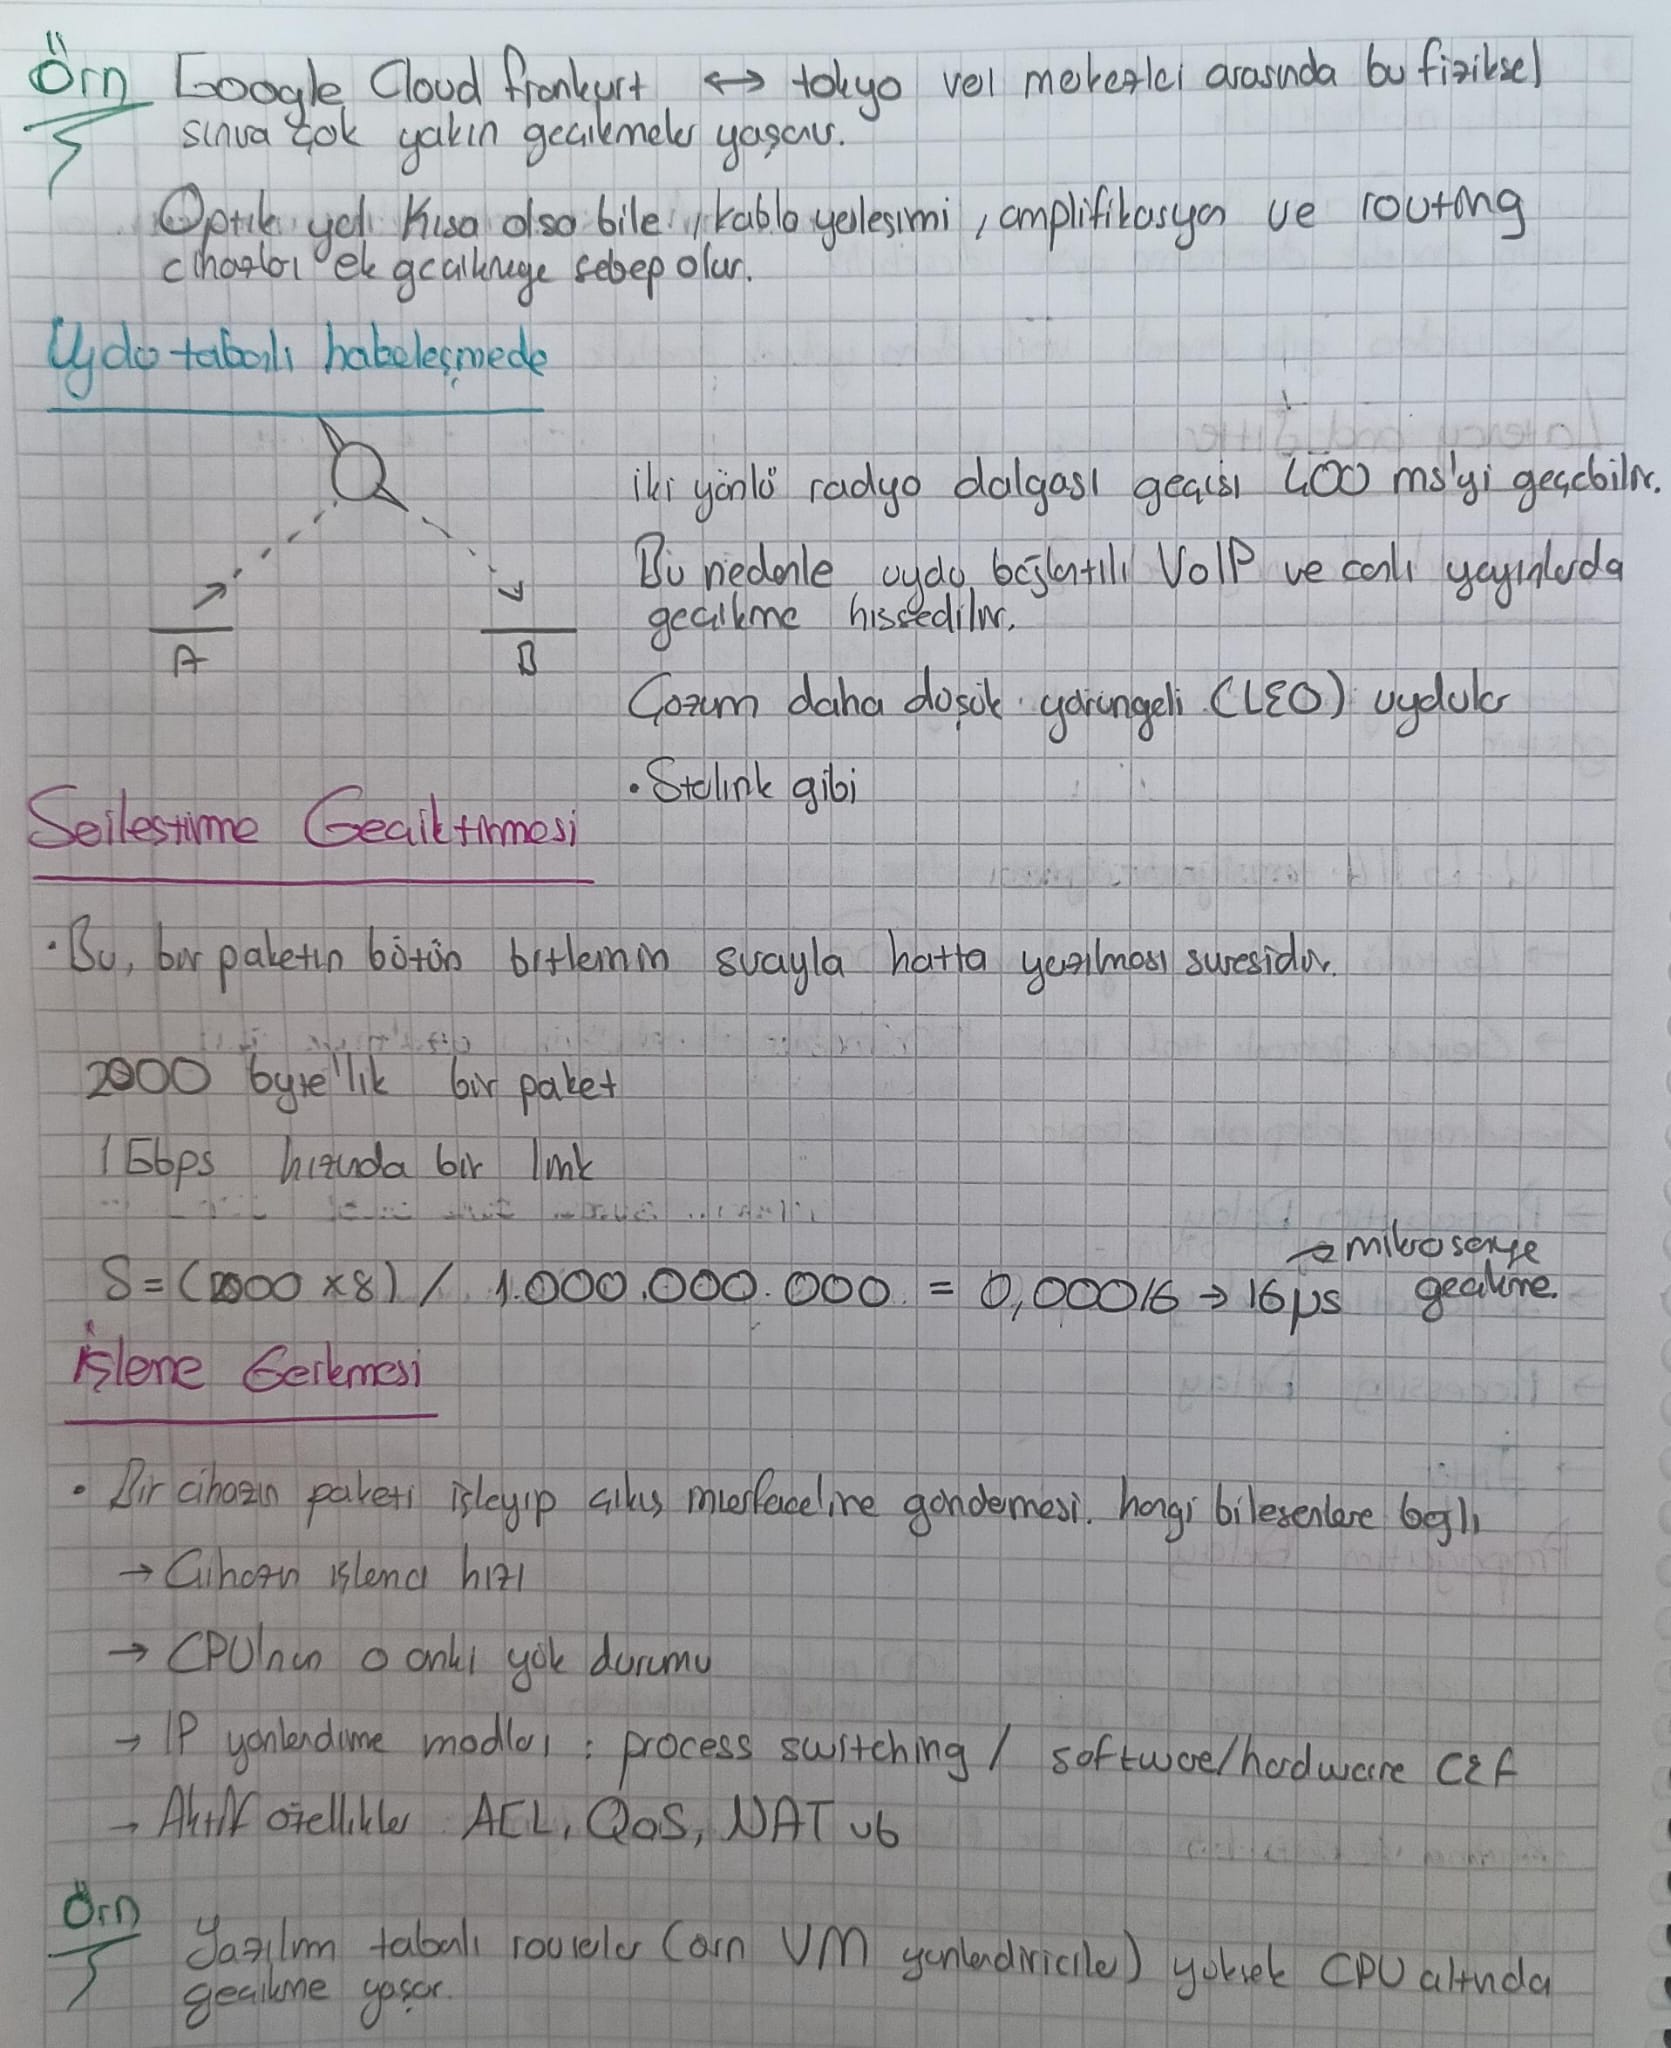 Örn Google Cloud Frankurt ↔ tokyo veri merkezleri arasında bu fiziksel
sınıra çok yakın gecikmeler yaşanır.
Optik yol kısa olsa bile, kablo yerleşimi, amplifikasyon ve routing
cihazları ek gecikmeye sebep olur.
Uydu tabanlı haberleşmede
iki yönlü radyo dalgası geçişi 400 ms'yi geçebilir.
Bu nedenle uydu bağlantılı VoIP ve canlı yayınlarda
gecikme hissedilir.
A B
Çözüm daha düşük yörüngeli (LEO) uydular
• Starlink gibi
Serileştirme Geciktirmesi
• Bu, bir paketin bütün bitlerinin sırayla hatta yazılması süresidir.
2000 byte'lık bir paket
1 Gbps hızında bir link
S = (2000 x 8) / 1.000.000.000. = 0,00016 → 16 µs → mikrosaniye
gecikme.
İşleme Gecikmesi
• Bir cihazın paketi işleyip çıkış interfaceine göndermesi. hangi bileşenlere bağlı
→ Cihazın işlemci hızı
→ CPU'nun o anki yük durumu
→ IP yönlendirme modları : process switching / software/hardware CEF
→ Aktif özellikler ACL, QoS, NAT vb
Örn Yazılım tabanlı routerler (örn VM yönlendiriciler) yüksek CPU altında
gecikme yaşar.